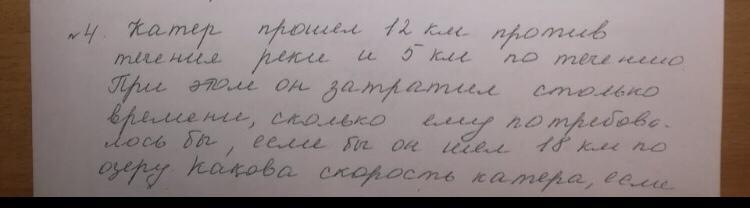 №4. Катер прошел 12 км против
течения реки и 5 км по течению
При этом он затратил столько
времени, сколько ему потребова-
лось бы, если бы он шел 18 км по
озеру. Какова скорость катера, если